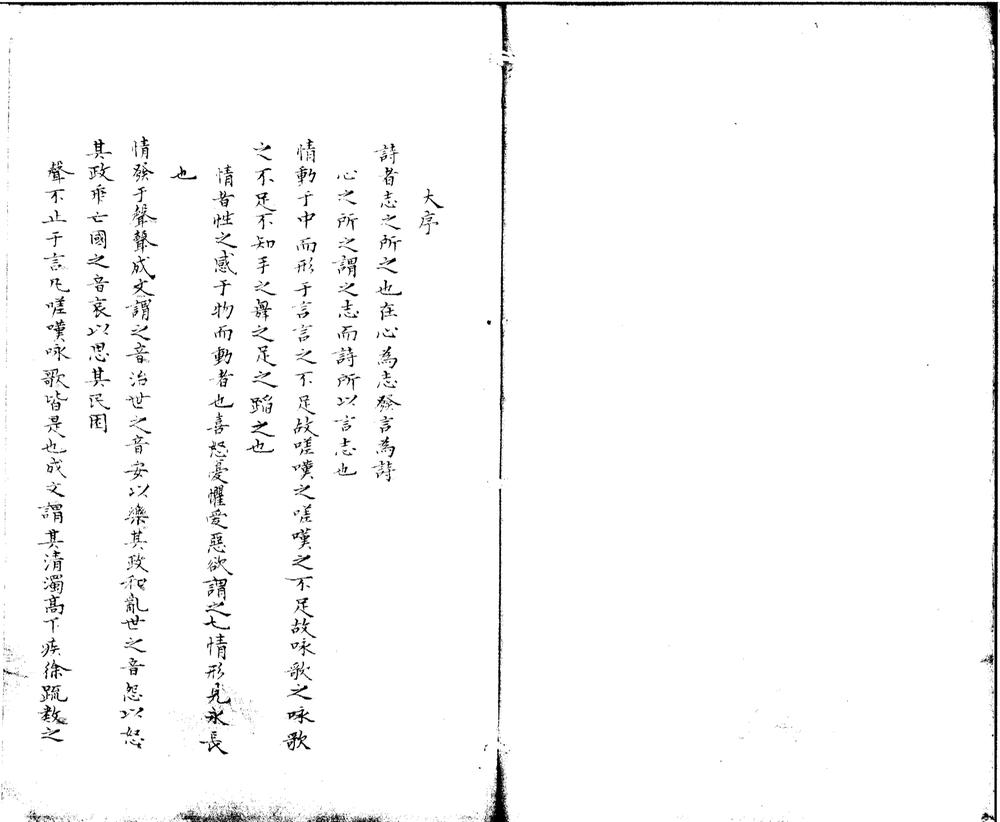 大序
詩者志之所之也在心為志發言為詩
心之所之謂之志而詩所以言志也
情動于中而形于言言之不足故嗟嘆之嗟嘆之不足故咏歌之咏歌
之不足不知手之舞之足之蹈之也
情者性之感于物而動者也喜怒憂懼愛惡欲謂之七情形見永長
也
情發于聲聲成文謂之音治世之音安以樂其政和亂世之音怨以怒
其政乖亡國之音哀以思其民困
聲不止于言凡嗟嘆咏歌皆是也成文謂其清濁高下疾徐䟽數之